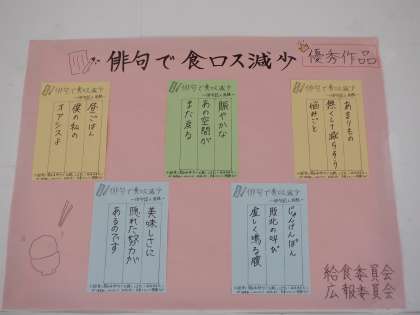 俳句で食ロス減少
優秀作品
俳句で食ロス減少
あまりもの
無くし減らそう
悩みごと
俳句で食ロス減少
賑やかな
あの空間が
また戻る
俳句で食ロス減少
昼ごはん
僕の私の
オアシスよ
俳句で食ロス減少
じゃんけんぽん
敗北の叫び
虚しく鳴る腹
俳句で食ロス減少
美味しさに
隠れた努力が
あるのです
給食委員会
広報委員会